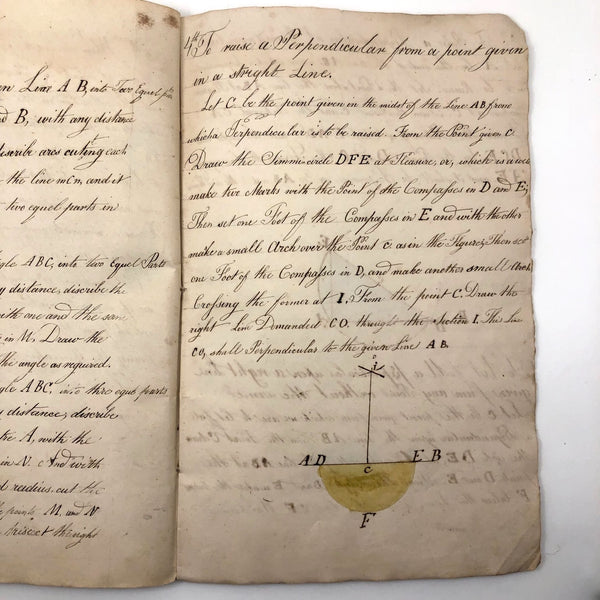 n Line A B, into Two Equal
d B, with any distance
describe arcs cuting each
the line m c n, and it
two equal parts in
gle ABC, into two Equal Parts
y distance, describe the
with one and the same
in M, Draw the
the angle as required.
gle ABC, into thre equl parts
y distance, describe
re A, with the
in N. c And with
d radius cut the
points, M, and N
the right
4th To raise a Perpendicular from a point given
in a stright Line.
Let C be the point given in the midst of the Line AB from
which a Perpendicular is to be raised. From the Point given C
Draw the Simmi-circle DFE at Pleasure, or, which is
make two Marks with the Point of the Compasses in D and E;
Then set one Foot of the Compasses in E and with the other
make a small Arch over the Point c as in the Figure; Then set
one Foot of the Compasses in D, and make another small Arch
Crossing the former at I, From the point C. Draw the
right Line Demanded CO. throught the Section I. The Line
CO, shall Perpendicular to the given Line AB.
o
i
A D
c
E B
F